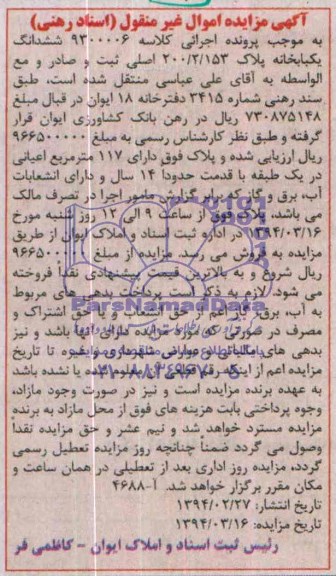 آگهی مزایده اموال غیر منقول (اسناد رهنی)
به موجب پرونده اجرائی کلاسه ۹۳۰۰۰۰۶ ششدانگ
یکبابخانه پلاک ۲۰۰/۲/۱۵۳ اصلی ثبت و صادر و مع
الواسطه به آقای علی عباسی منتقل شده است، طبق
سند رهنی شماره ۳۴۱۵ دفترخانه ۱۸ ایوان در قبال مبلغ
۷۳۰۸۷۵۱۴۸ ریال در رهن بانک کشاورزی ایوان قرار
گرفته و طبق نظر کارشناس رسمی به مبلغ ۹۶۶۵۰۰۰۰۰
ریال ارزیابی شده و پلاک فوق دارای ۱۱۷ مترمربع اعیانی
در یک طبقه با قدمت حدوداً ۱۴ سال و دارای انشعابات
آب، برق و گاز که برابر گزارش مامور اجرا در تصرف مالک
می باشد، پلاک فوق از ساعت ۹ الی ۱۲ روز شنبه مورخ
۱۳۹۴/۰۳/۱۶ در اداره ثبت اسناد و املاک ایوان از طریق
مزایده به فروش می رسد. مزایده از مبلغ ۹۶۶۵۰۰۰۰۰
ریال شروع و به بالاترین قیمت پیشنهادی نقداً فروخته
می شود. لازم به ذکر است پرداخت بدهی های مربوط
به آب، برق، گاز اعم از حق انشعاب و یا حق اشتراک و
مصرف در صورتی که مورد مزایده دارای آنها باشد و نیز
بدهی های مالیاتی و عوارض شهرداری و غیره تا تاریخ
مزایده اعم از اینکه رقم قطعی آن معلوم شده یا نشده باشد
به عهده برنده مزایده است و نیز در صورت وجود مازاد،
وجوه پرداختی بابت هزینه های فوق از محل مازاد به برنده
مزایده مسترد خواهد شد و نیم عشر و حق مزایده نقداً
وصول می گردد ضمناً چنانچه روز مزایده تعطیل رسمی
گردد، مزایده روز اداری بعد از تعطیلی در همان ساعت و
مکان مقرر برگزار خواهد شد. آ-۴۶۸۸
تاریخ انتشار: ۱۳۹۴/۰۲/۲۷
تاریخ مزایده: ۱۳۹۴/۰۳/۱۶
رئیس ثبت اسناد و املاک ایوان - کاظمی فر
ParsNamadData